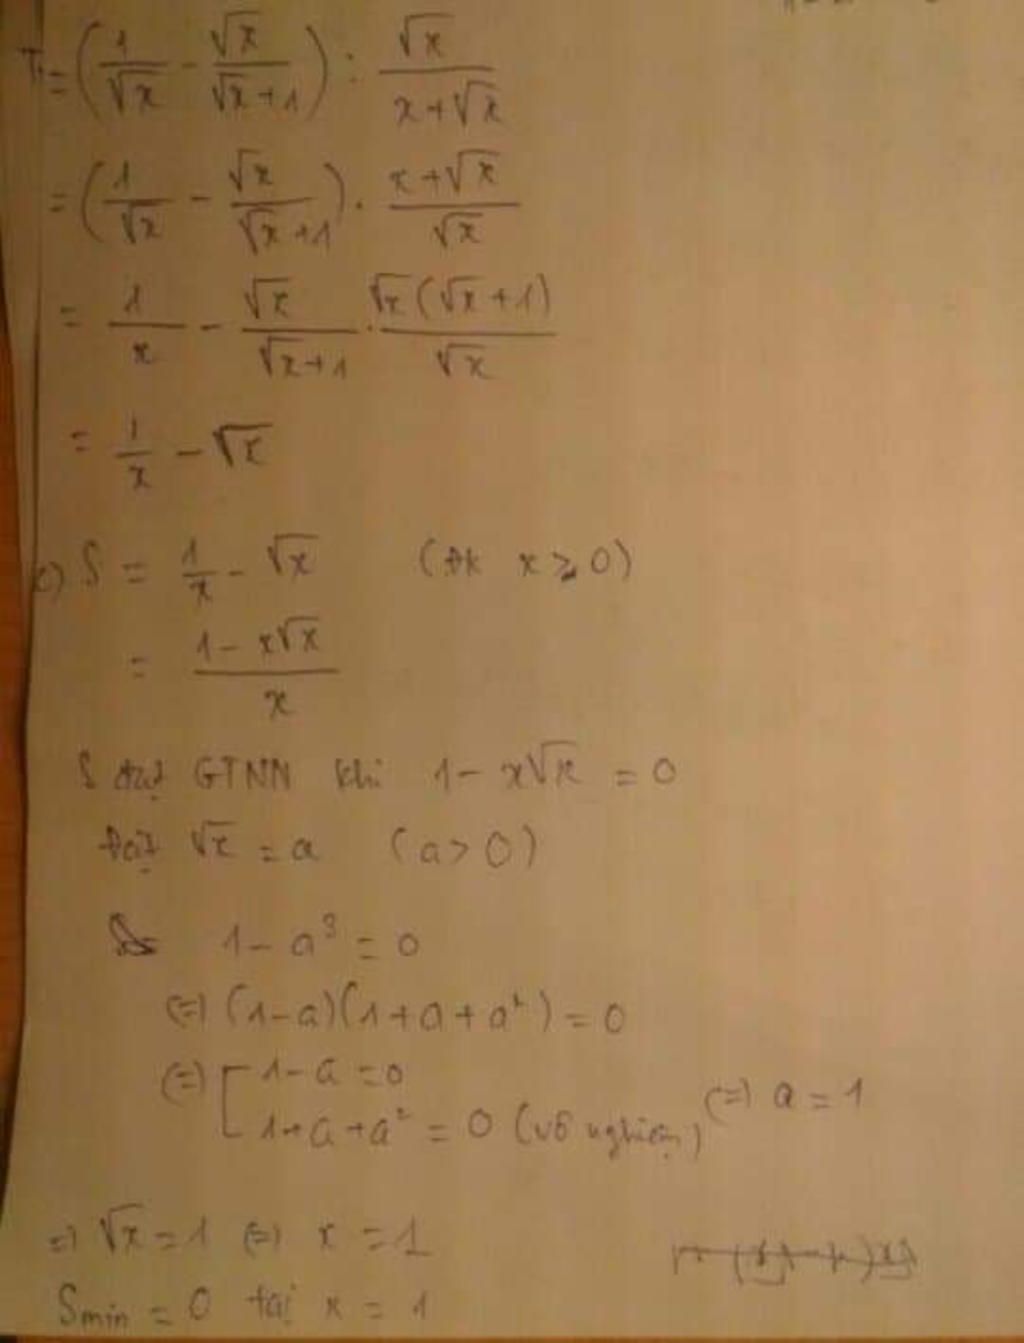 T = (1/√x - √x/(√x+1)) : √x/(x+√x)
= (1/√x - √x/(√x+1)) . (x+√x)/√x
= 1/x - √x/(√x+1) . √x(√x+1)/√x
= 1/x - √x
c) S = 1/x - √x (Đk x ≥ 0)
= (1 - x√x)/x
S đạt GTNN khi 1 - x√x = 0
Đặt √x = a (a > 0)
1 - a³ = 0
(=) (1-a)(1+a+a²) = 0
(=) [ 1-a = 0
1+a+a² = 0 (vô nghiệm) (=) a = 1
=) √x = 1 (=) x = 1
Smin = 0 tại x = 1